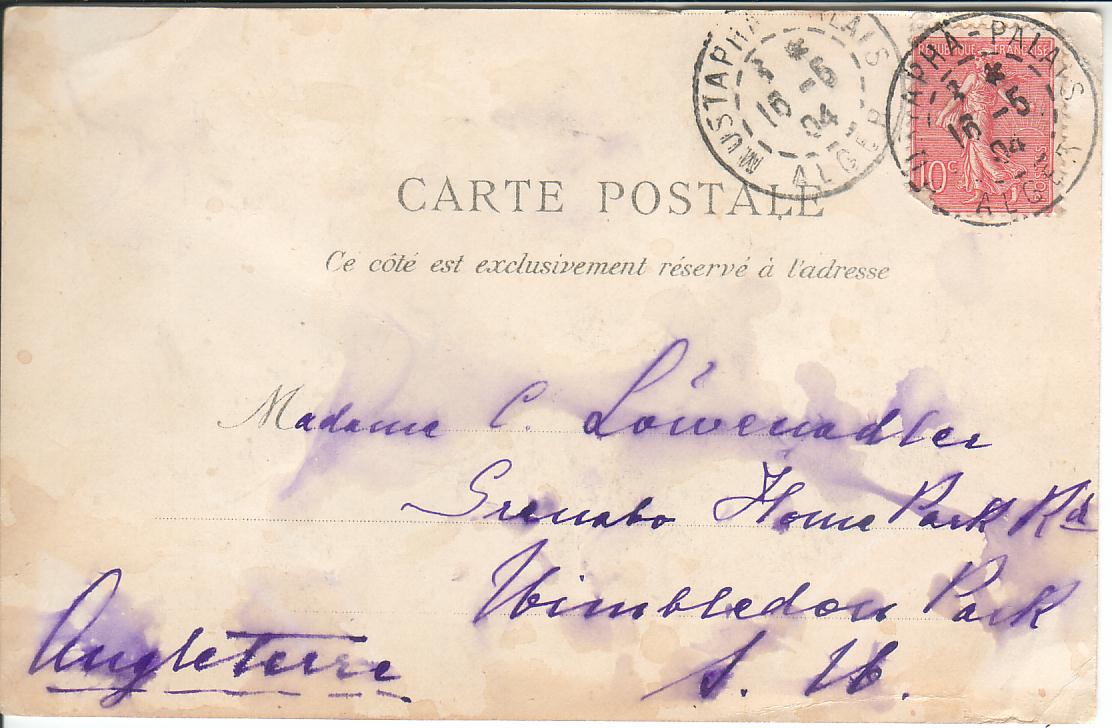 MUSTAPHA-PALAIS
15 -5
04
ALGER
REPUBLIQUE FRANÇAISE
10c
POSTES
MUSTAPHA-PALAIS
15 -5
04
ALGER
CARTE POSTALE
Ce côté est exclusivement réservé à l'adresse
Madame C. Löwenadler
Home Park Rd
Wimbledon Park
S. W.
Angleterre